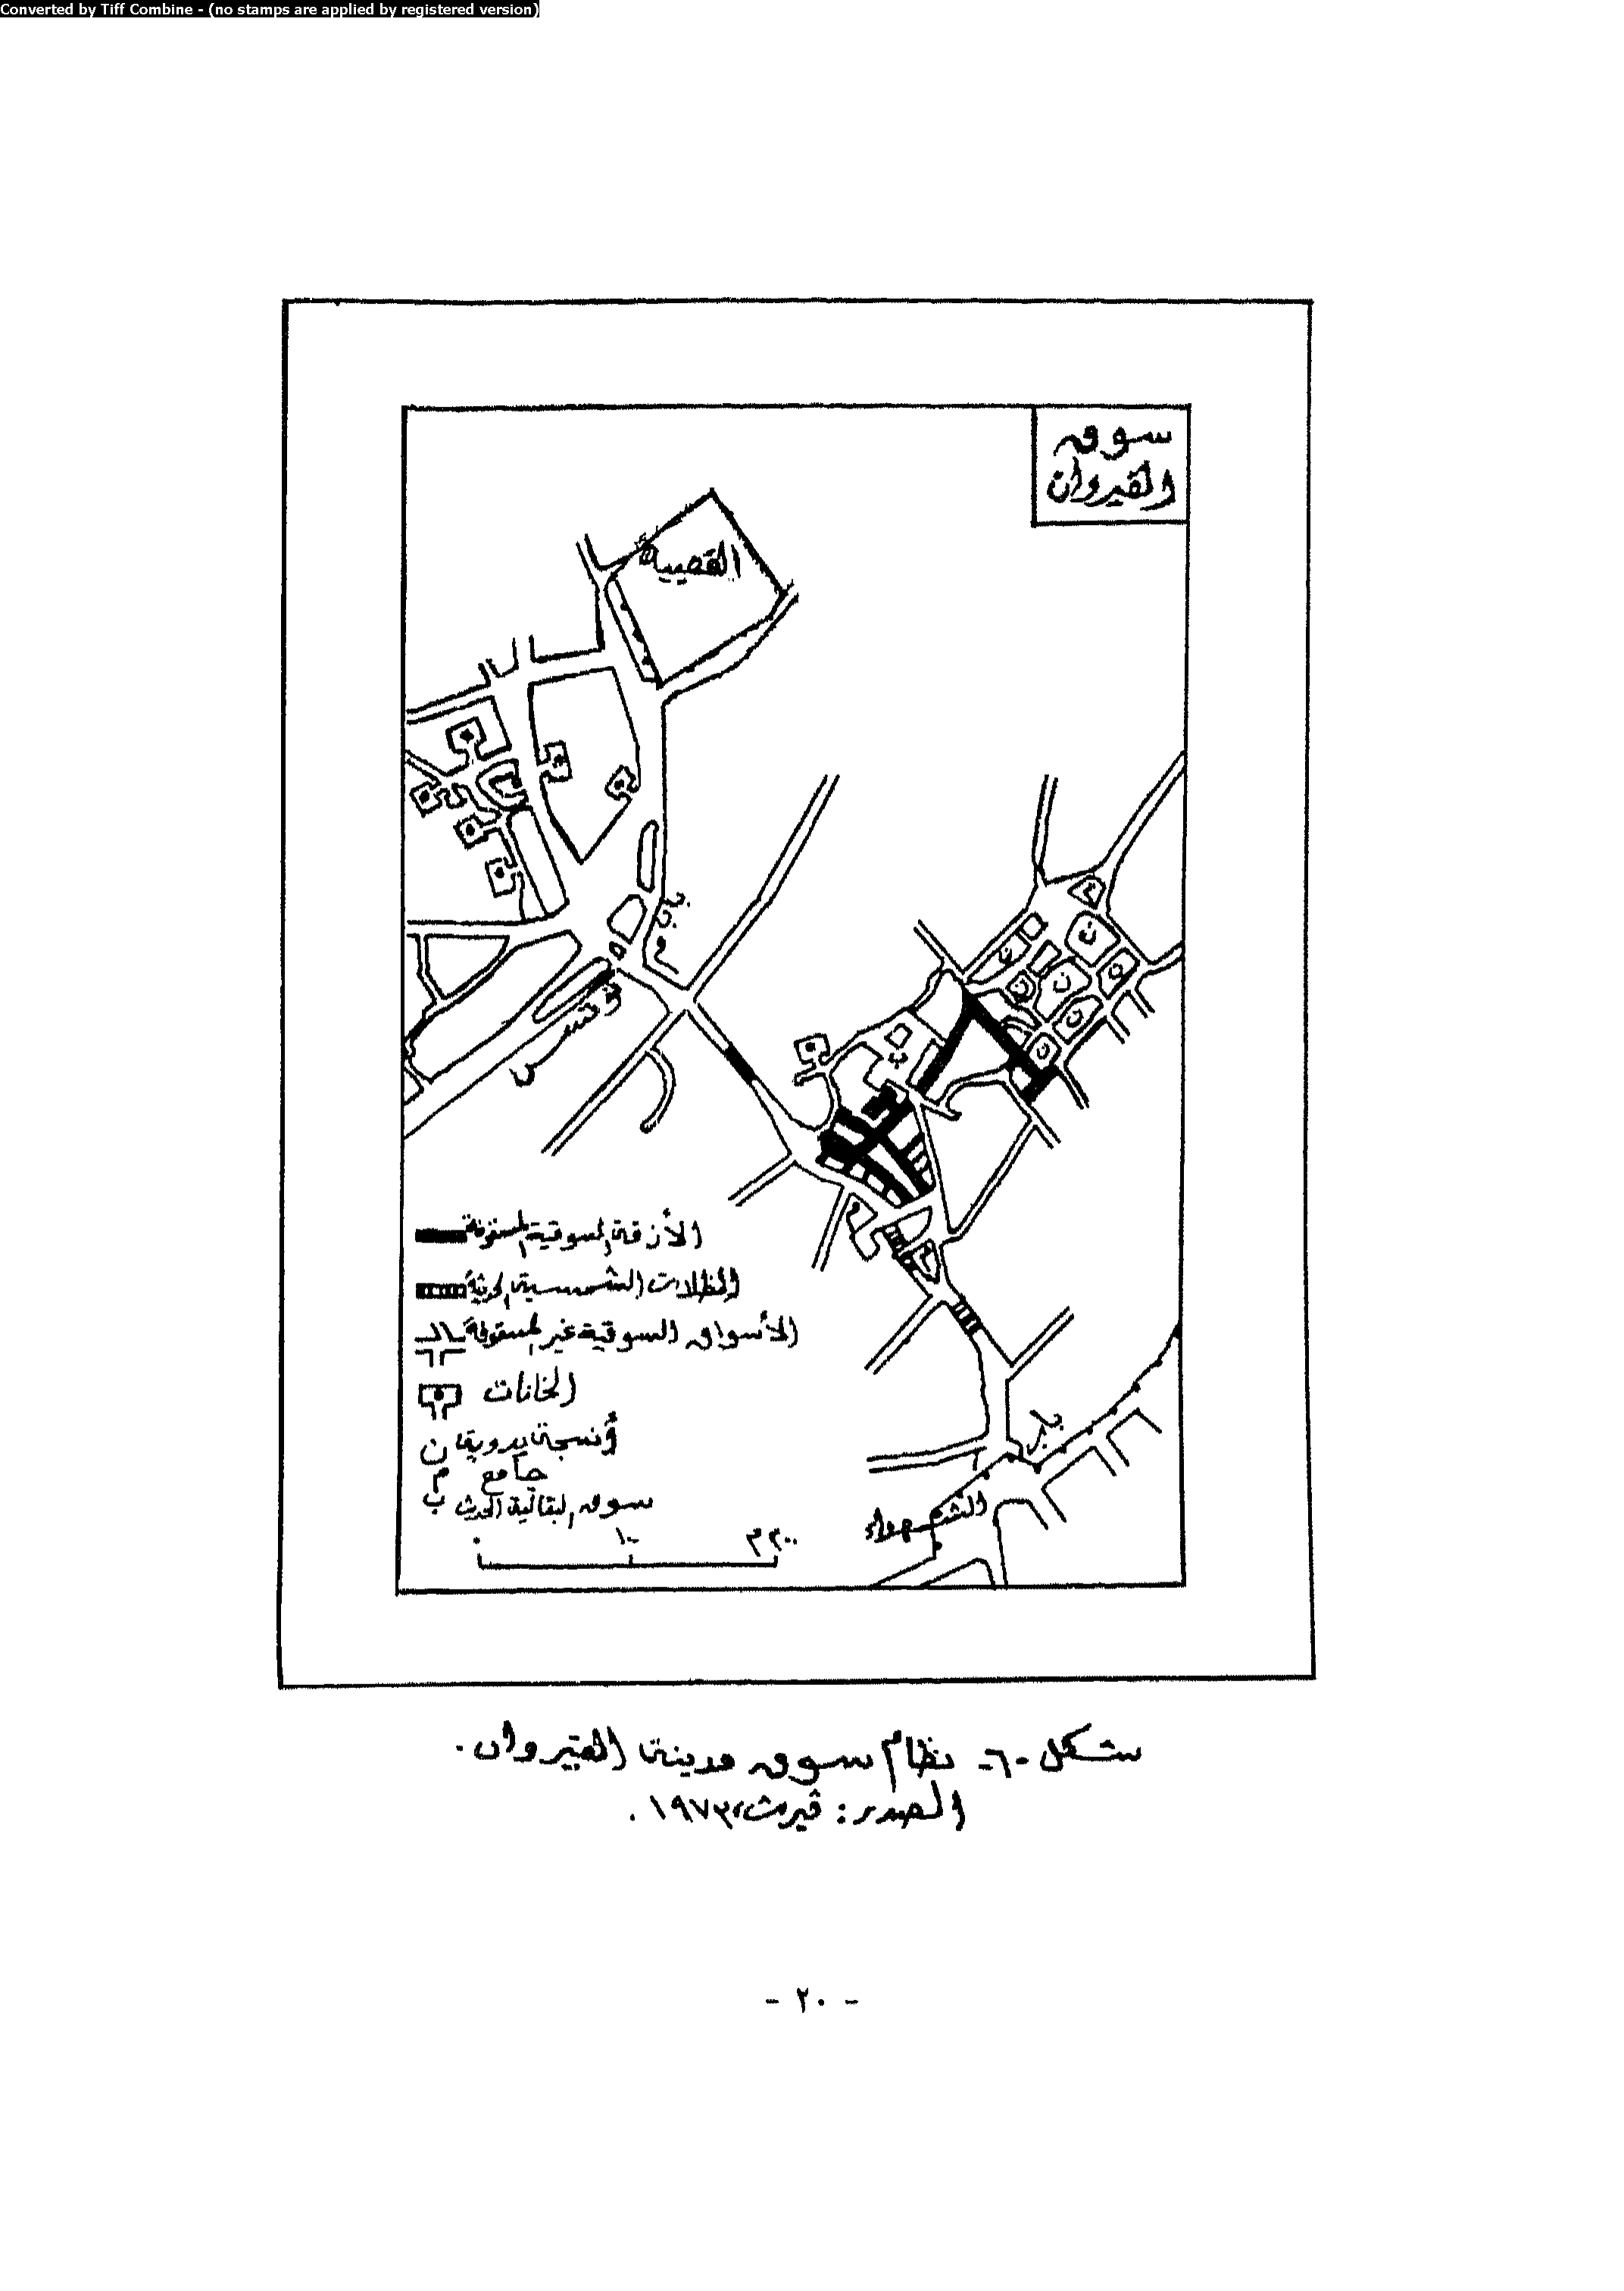 Converted by Tiff Combine - (no stamps are applied by registered version)
سوق
القيروان
القصبة
باب
تونس
باب
الشهداء
الأزقة السوقية المسقوفة
المظلات الشمسية الحديثة
الأسواق السوقية غير المسقوفة
الخانات
أنسجة يدوية ن
جامع م
سوق البقالية الحديث ب
٠ ١٠٠ ٢٠٠ م
شكل -٦- نظام سوق مدينة القيروان.
المصدر: ڤيرث، ١٩٧٣.
- ٢٠ -